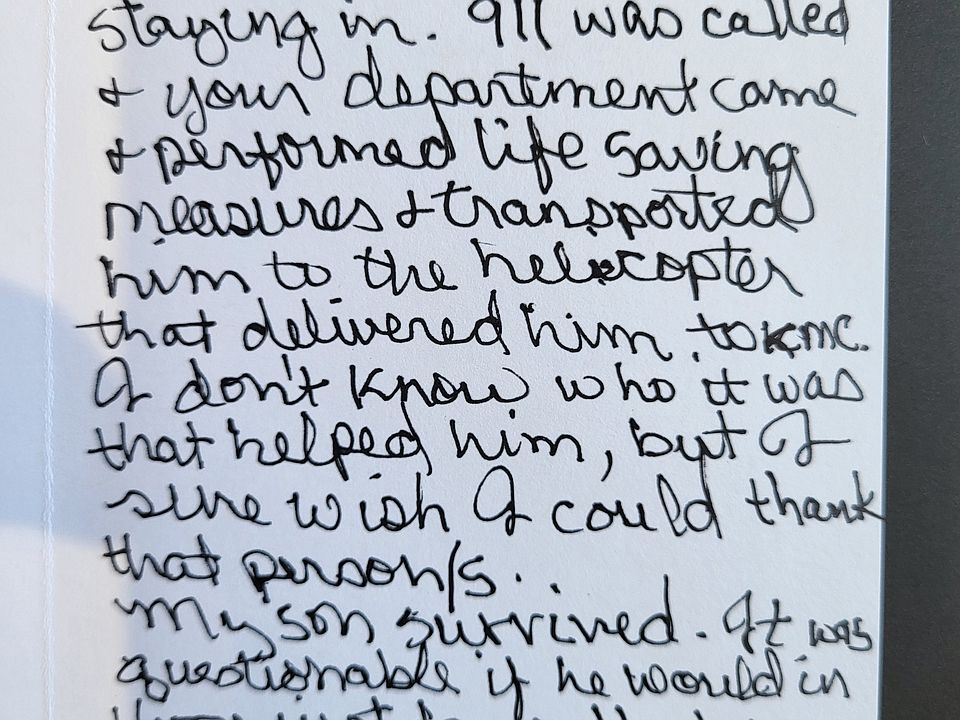 staying in. 911 was called
& your department came
& performed life saving
measures & transported
him to the helicopter
that delivered him to KMC.
I don't know who it was
that helped him, but I
sure wish I could thank
that person/s.
My son survived. It was
questionable if he would in